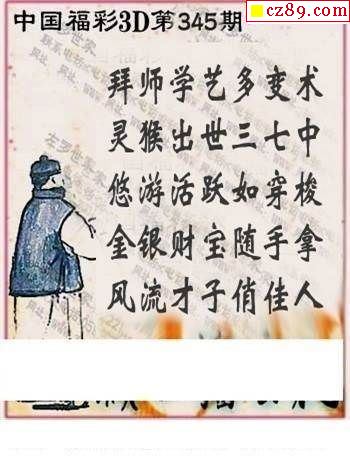 cz89.com
中国福彩3D第345期
拜师学艺多变术
灵猴出世三七中
悠游活跃如穿梭
金银财宝随手拿
风流才子俏佳人